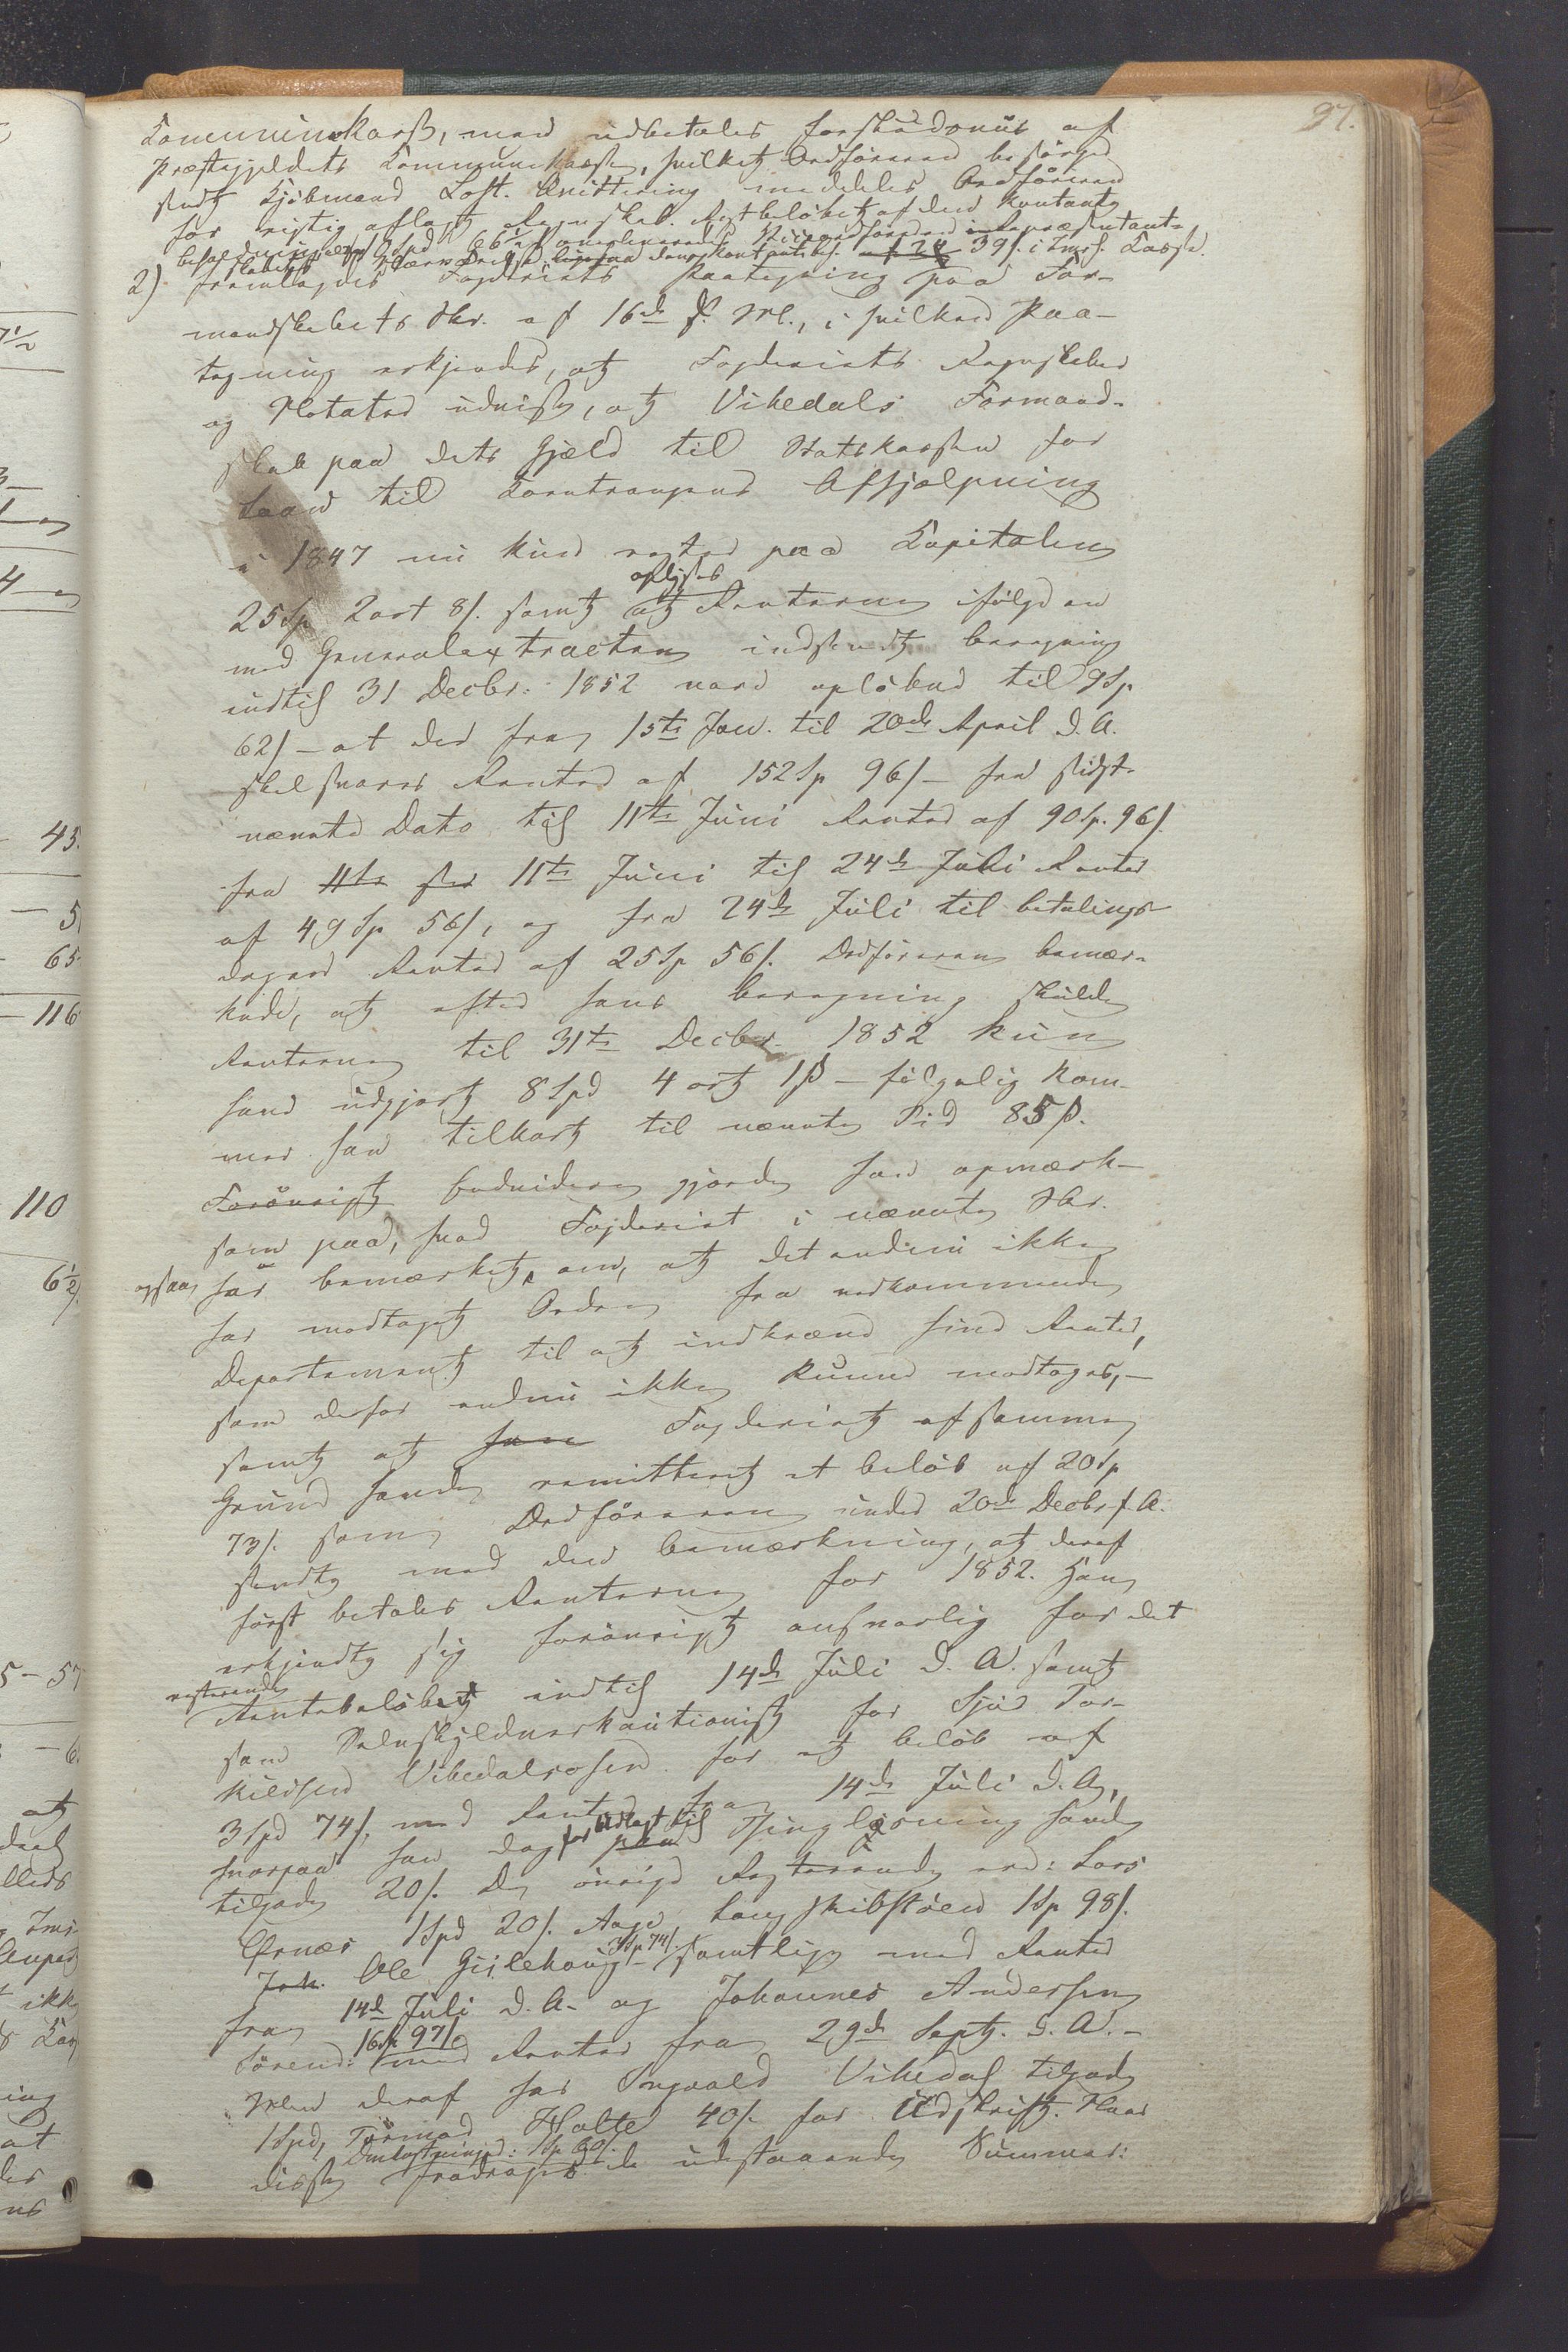 97.
Communekasse, med udbetales forskudsviis af
Præstegjeldets Communekasse, hvilket Ordföreren besörged
sendt Kjöbmand Loft. Qvittering meddeles Ordföreren
for rigtig aflagt Regnskab. Restbelöbet af den Kontante
39 s. i Imsl. Casse.
2) Fremlagdes Fogderiets Paategning paa For-
mandskabets Skr. af 16de f. M., i hvilken Paa-
tegning erkjendes, at Fogderiets Regnskaber
og Notater udviser, at Vikedals Formand-
skab paa dets Gjæld til Statskassen for
Laan til Korntrangens Afhjælpning
i 1847 nu kun rester paa Capitalen
25 Sp 2 ort 8 s. samt at oplyses Renterne ifölge en
med Generalextracten indsendt beregning
indtil 31 Decbr. 1852 vare oplöbne til 9 Sp
62 s - at der fra 1ste Jan. til 20de April d. A.
skal svares Renter af 152 Sp 96 s - fra sidst-
nævnte Dato til 11te Juni Renter af 90 Sp. 96 s.
fra 11te 11te Juni til 24de Juli Renter
af 49 Sp 56 s, og fra 24de Juli til betalings-
dagen Renter af 25 Sp 56 s. Ordföreren bemær-
kede, at efter hans beregning skulde
Renterne til 31te Decbr. 1852 kun
have udgjort 8 Spd 4 ort 1 s - fölgelig kom-
mer han tilkort til nævnte Tid 85 s.
Forövrigt Endvidere gjorde han opmærk-
som paa, hvad Fogderiet i nævnte Skr.
ogsaa har bemærket, om, at det endnu ikke
har modtaget Ordre fra vedkommende
Departement til at indkræve sine Renter,
som derfor endnu ikke kunne modtages, -
samt at han Fogderiet af samme
Grund havde remitteret et belöb af 20 Sp
73 s. som Ordföreren under 20de Decbr f. A.
sendte med den bemærkning, at deraf
först betales Renterne for 1852. Han
erkjendte sig forövrigt ansvarlig for det
resterende Rentebelöbet indtil 14de Juli d. A. samt
som Selvskyldnerkautionist for Sjur Tor-
kildsen Vikedalsosen for et belöb af
3 Spd 74 s, med Renter fra 14de Juli d. A,
hvorpaa han dog for Udlagt til Thinglæsning havde
tilgode 20 s. De övrige Resterende ere: Lars
Örnæs 1 Spd 20 s. Aage Langskibstöen 1 Sp 98 s.
Joh. Ole Gjilehaug 3 Sp 74 s. - samtlige med Renter
fra 14de Juli d. A. og Johannes Andersen
Sörend: 16 Sp 97 s med Renter fra 29de Septr. d. A. -
Men deraf har Ingvald Vikedal tilgode
1 Spd, Tormod Holte 40 s. for Udskrift. Naar
disse Omkostninger: 1 Sp 60 s. fradrages de udestaaende Summer: